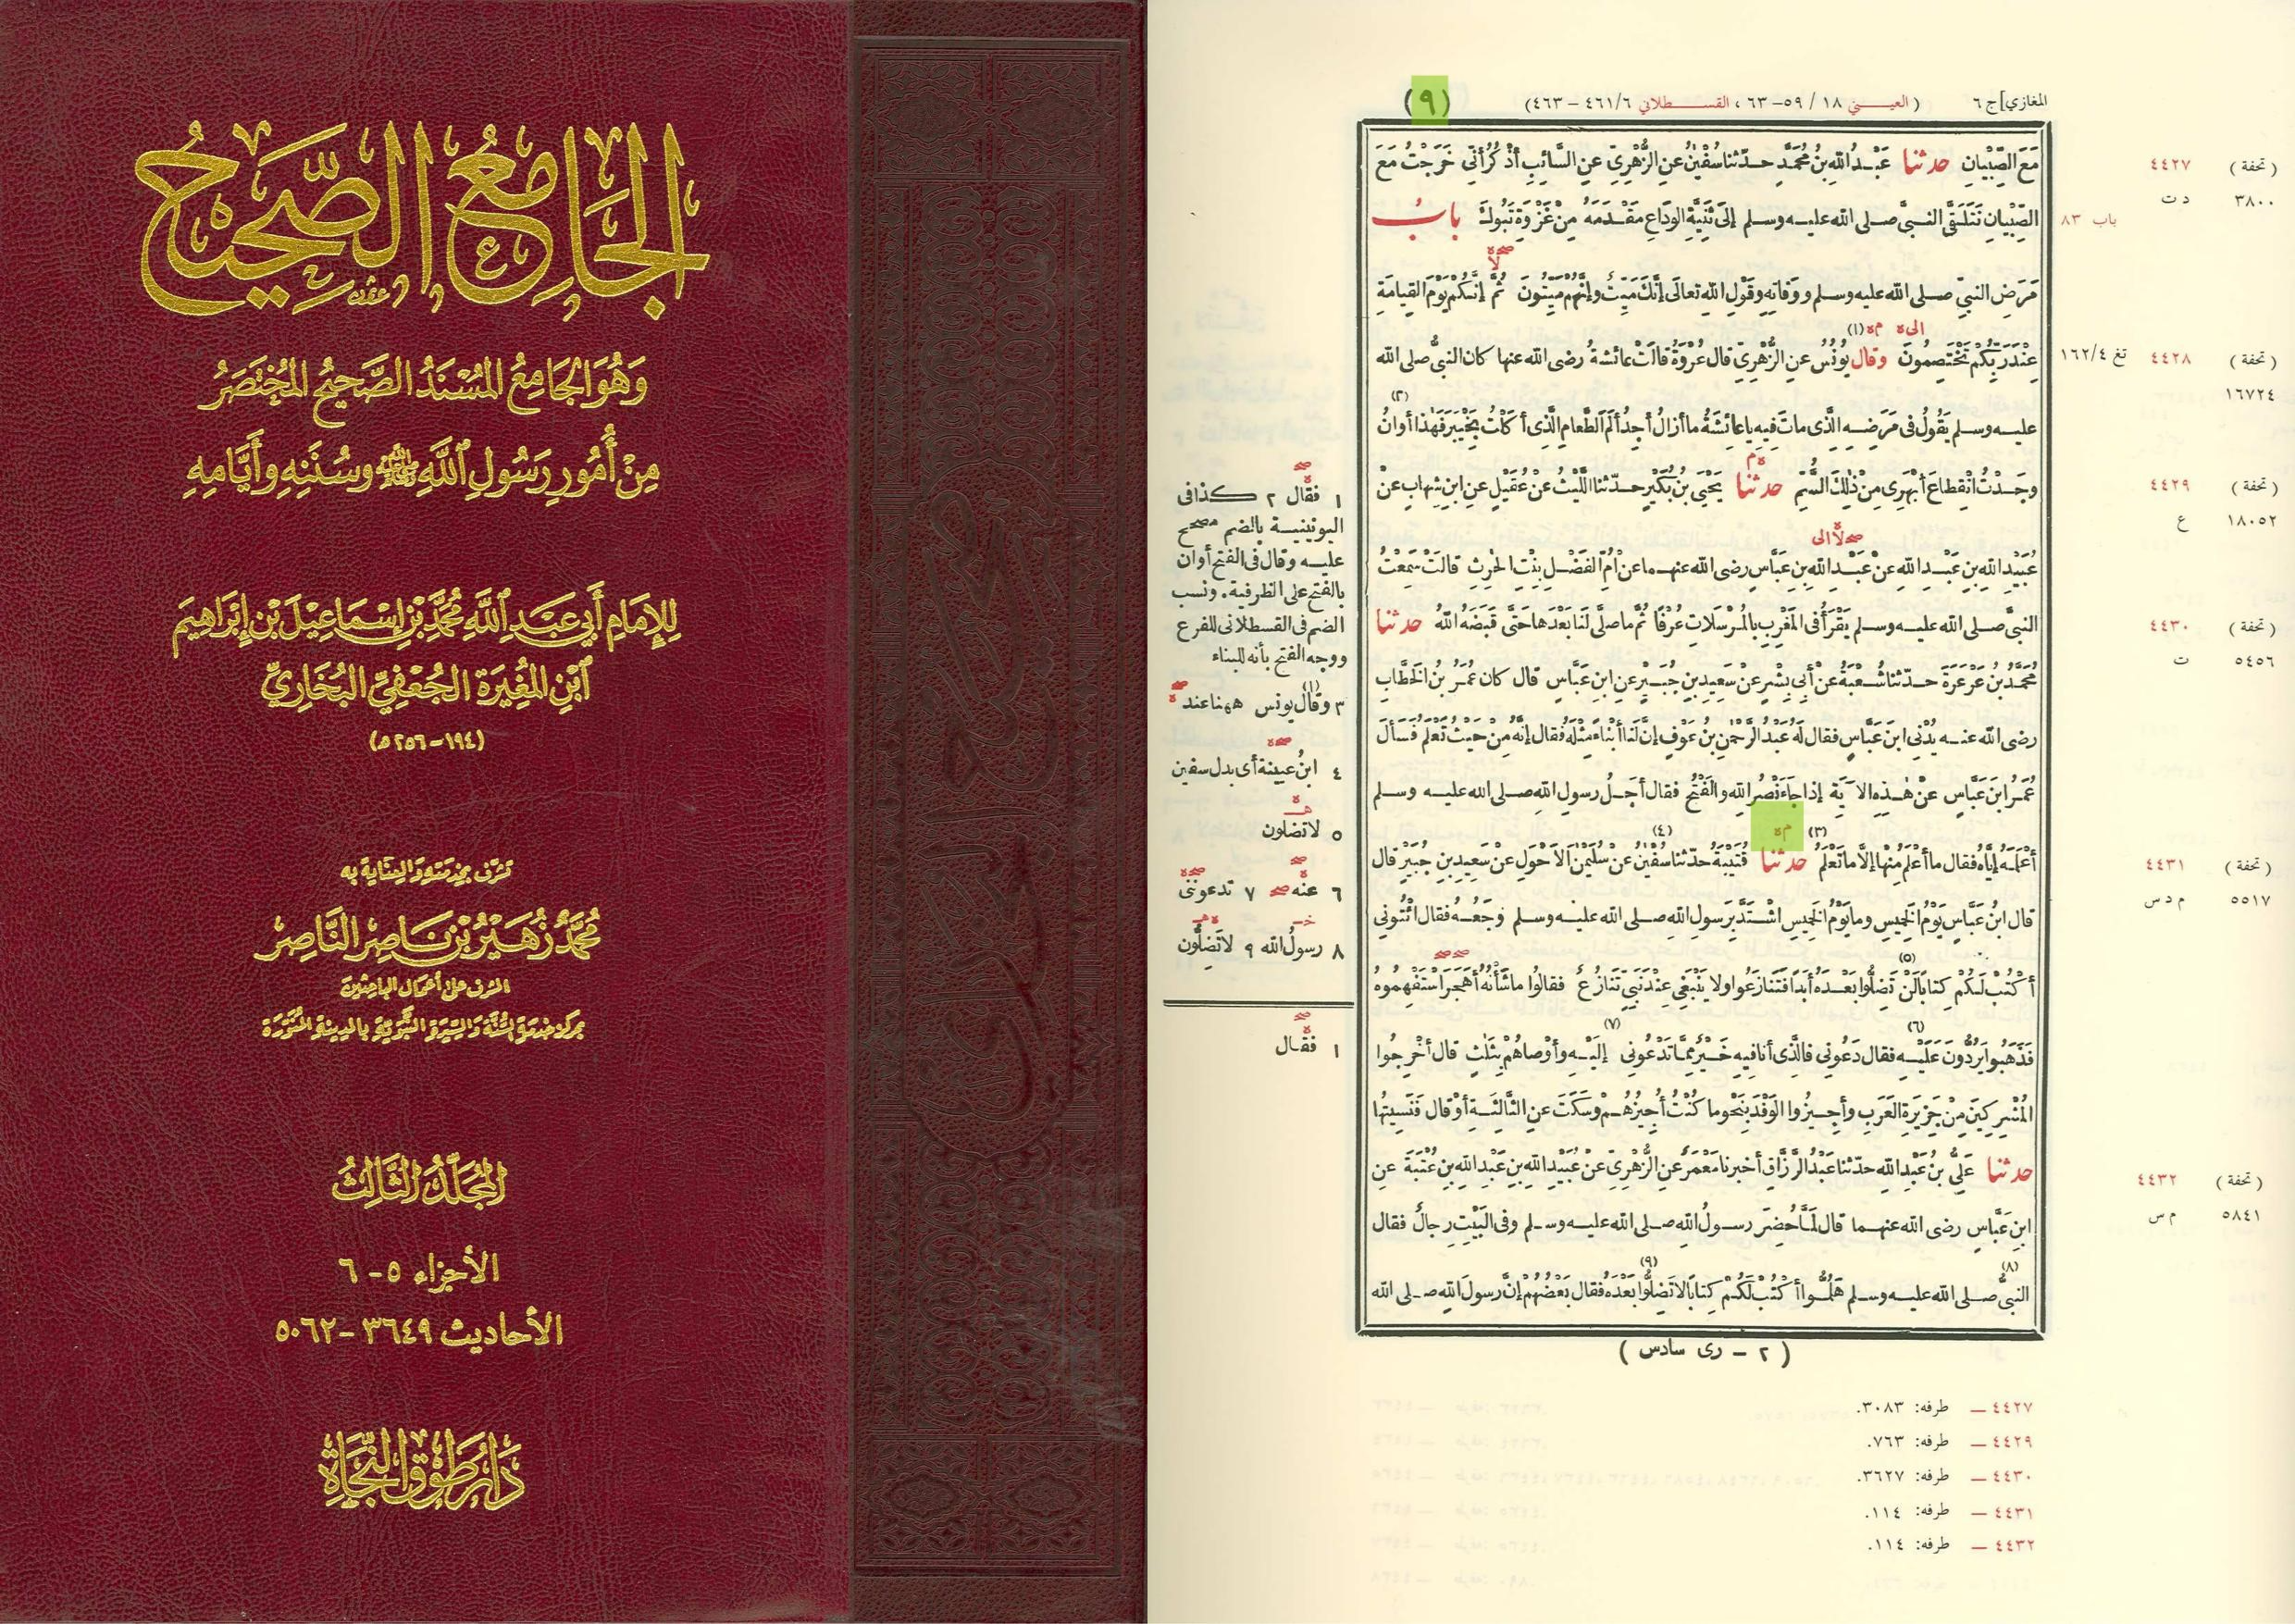 الجامع الصحيح
وهو الجامع المسند الصحيح المختصر
من أمور رسول الله ﷺ وسننه وأيامه
للإمام أبي عبد الله محمد بن إسماعيل بن إبراهيم
ابن المغيرة الجعفي البخاري
(١٩٤-٢٥٦هـ)
تشرف بخدمته والعناية به
محمد زهير بن ناصر الناصر
المشرف على أعمال الباحثين
بمركز خدمة السنة والسيرة النبوية بالمدينة المنورة
المجلد الثالث
الأجزاء ٥-٦
الأحاديث ٣٦٤٩-٥٠٦٢
دار طوق النجاة
المغازي] ج ٦ (العيني ١٨ / ٥٩-٦٣ ، القسطلاني ٤٦١/٦ - ٤٦٣) (٩)
مَعَ الصِّبْيَانِ حدثنا عَبْدُ اللهِ بنُ مُحَمَّدٍ حدّثنا سُفْيٰنُ عنِ الزُّهْرِيِّ عنِ السَّائِبِ أذْكُرُ أنِّي خَرَجْتُ مَعَ
الصِّبْيانِ نَتَلَقَّى النبيَّ صلى الله عليه وسلم إلى ثَنِيَّةِ الوَدَاعِ مَقْدَمَهُ مِنْ غَزْوَةِ تَبُوكَ بابُ
مَرَضِ النبيِّ صلى الله عليه وسلم ووَفاتِهِ وقَوْلِ اللهِ تعالى إنَّكَ مَيِّتٌ وإنَّهُمْ مَيِّتُونَ ثُمَّ إنَّكُمْ يَوْمَ القِيامَةِ
عِنْدَ رَبِّكُمْ تَخْتَصِمُونَ وقال يُونُسُ عنِ الزُّهْرِيِّ قال عُرْوَةُ قالَتْ عائشةُ رضى الله عنها كان النبيُّ صلى الله
عليه وسلم يَقُولُ فى مَرَضِهِ الَّذِى ماتَ فيهِ يا عائِشَةُ ما أزالُ أجِدُ ألَمَ الطَّعامِ الَّذِى أكَلْتُ بِخَيْبَرَ فَهٰذا أوانُ
وجَدْتُ انْقِطاعَ أبْهَرِى مِنْ ذٰلِكَ السَّمِّ حدثنا يَحْيَى بنُ بُكَيْرٍ حدّثنا اللَّيْثُ عنْ عُقَيْلٍ عنِ ابنِ شِهابٍ عنْ
عُبَيْدِ اللهِ بنِ عَبْدِ اللهِ عنْ عَبْدِ اللهِ بنِ عَبَّاسٍ رضى الله عنهما عنْ أُمِّ الفَضْلِ بِنْتِ الحٰرِثِ قالَتْ سَمِعْتُ
النبيَّ صلى الله عليه وسلم يَقْرَأُ فى المَغْرِبِ بالمُرْسَلاتِ عُرْفًا ثُمَّ ما صلَّى لَنا بَعْدَها حتَّى قَبَضَهُ اللهُ حدثنا
مُحَمَّدُ بنُ عَرْعَرَةَ حدّثنا شُعْبَةُ عنْ أبى بِشْرٍ عنْ سَعِيدِ بنِ جُبَيْرٍ عنِ ابنِ عَبَّاسٍ قال كان عُمَرُ بنُ الخَطَّابِ
رضى الله عنه يُدْنِى ابنَ عَبَّاسٍ فقال لَهُ عَبْدُ الرَّحْمٰنِ بنُ عَوْفٍ إنَّ لَنا أبْناءً مِثْلَهُ فقال إنَّهُ مِنْ حَيْثُ تَعْلَمُ فَسَألَ
عُمَرُ ابنَ عَبَّاسٍ عنْ هٰذِهِ الآيَةِ إذا جاءَ نَصْرُ اللهِ والفَتْحُ فقال أجَلُ رسولِ اللهِ صلى الله عليه وسلم
أعْلَمَهُ إيَّاهُ فقال ما أعْلَمُ مِنْها إلَّا ما تَعْلَمُ (٣) حدثنا قُتَيْبَةُ حدّثنا سُفْيٰنُ (٤) عنْ سُلَيْمٰنَ الأحْوَلِ عنْ سَعِيدِ بنِ جُبَيْرٍ قال
قال ابنُ عَبَّاسٍ يَوْمُ الخَمِيسِ وما يَوْمُ الخَمِيسِ اشْتَدَّ بِرَسولِ اللهِ صلى الله عليه وسلم وجَعُهُ فقال ائْتُونِى
أكْتُبْ لَكُمْ كِتابًا لَنْ تَضِلُّوا (٥) بَعْدَهُ أبَدًا فَتَنازَعُوا ولا يَنْبَغِى عِنْدَ نَبِيٍّ تَنازُعٌ فقالُوا ما شَأْنُهُ أهَجَرَ اسْتَفْهِمُوهُ
فَذَهَبُوا يَرُدُّونَ عَلَيْهِ (٦) فقال دَعُونِى فالَّذِى أنا فيهِ خَيْرٌ مِمَّا تَدْعُونِى (٧) إلَيْهِ وأوْصاهُمْ بِثَلٰثٍ قال أخْرِجُوا
المُشْرِكِينَ مِنْ جَزِيرَةِ العَرَبِ وأجِيزُوا الوَفْدَ بِنَحْوِ ما كُنْتُ أُجِيزُهُمْ وسَكَتَ عنِ الثَّالِثَةِ أوْ قال فَنَسِيتُها
حدثنا عَلِيُّ بنُ عَبْدِ اللهِ حدّثنا عَبْدُ الرَّزَّاقِ أخبرنا مَعْمَرٌ عنِ الزُّهْرِيِّ عنْ عُبَيْدِ اللهِ بنِ عَبْدِ اللهِ بنِ عُتْبَةَ عنِ
ابنِ عَبَّاسٍ رضى الله عنهما قال لَمَّا حُضِرَ رسولُ اللهِ صلى الله عليه وسلم وفى البَيْتِ رِجالٌ فقال
النبيُّ (٨) صلى الله عليه وسلم هَلُمُّوا أكْتُبْ لَكُمْ كِتابًا لا تَضِلُّوا (٩) بَعْدَهُ فقال بَعْضُهُمْ إنَّ رسولَ اللهِ صلى الله
( ٢ - رى سادس )
باب ٨٣
٤٤٢٧ (تحفة)
د ت ٣٨٠٠
تغ ١٦٢/٤ ٤٤٢٨ (تحفة)
١٦٧٢٤
٤٤٢٩ (تحفة)
ع ١٨٠٥٢
٤٤٣٠ (تحفة)
ت ٥٤٥٦
٤٤٣١ (تحفة)
م د س ٥٥١٧
٤٤٣٢ (تحفة)
م س ٥٨٤١
١ فقال ٢ كذا فى
اليونينية بالضم مصحح
عليه وقال فى الفتح أوان
بالفتح على الظرفية. ونسب
الضم فى القسطلانى للفرع
ووجه الفتح بأنه للبناء
٣ وقال يونس ههنا عند
٤ ابنُ عيينة أى بدل سفين
٥ لا تضلون
٦ عنه ٧ تدعوننى
٨ رسولُ الله ٩ لا تَضِلُّون
١ فقال
٤٤٢٧ — طرفه: ٣٠٨٣.
٤٤٢٩ — طرفه: ٧٦٣.
٤٤٣٠ — طرفه: ٣٦٢٧.
٤٤٣١ — طرفه: ١١٤.
٤٤٣٢ — طرفه: ١١٤.